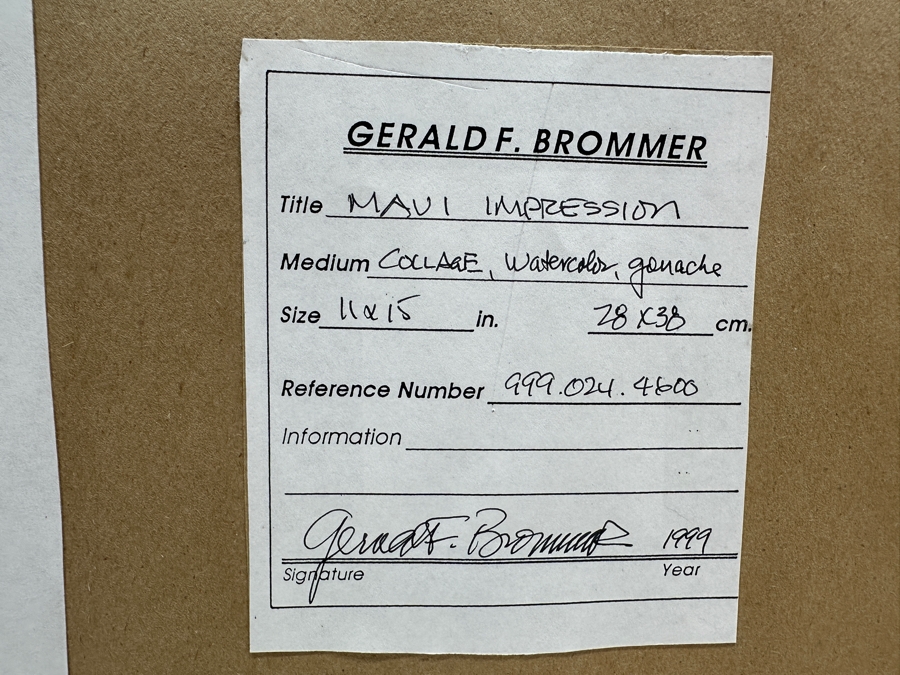 GERALD F. BROMMER
Title MAUI IMPRESSION
Medium COLLAGE, Watercolor, gouache
Size 11x15 in. 28 X 38 cm.
Reference Number 999.024.4600
Information
Gerald F. Brommer 1999
Signature Year